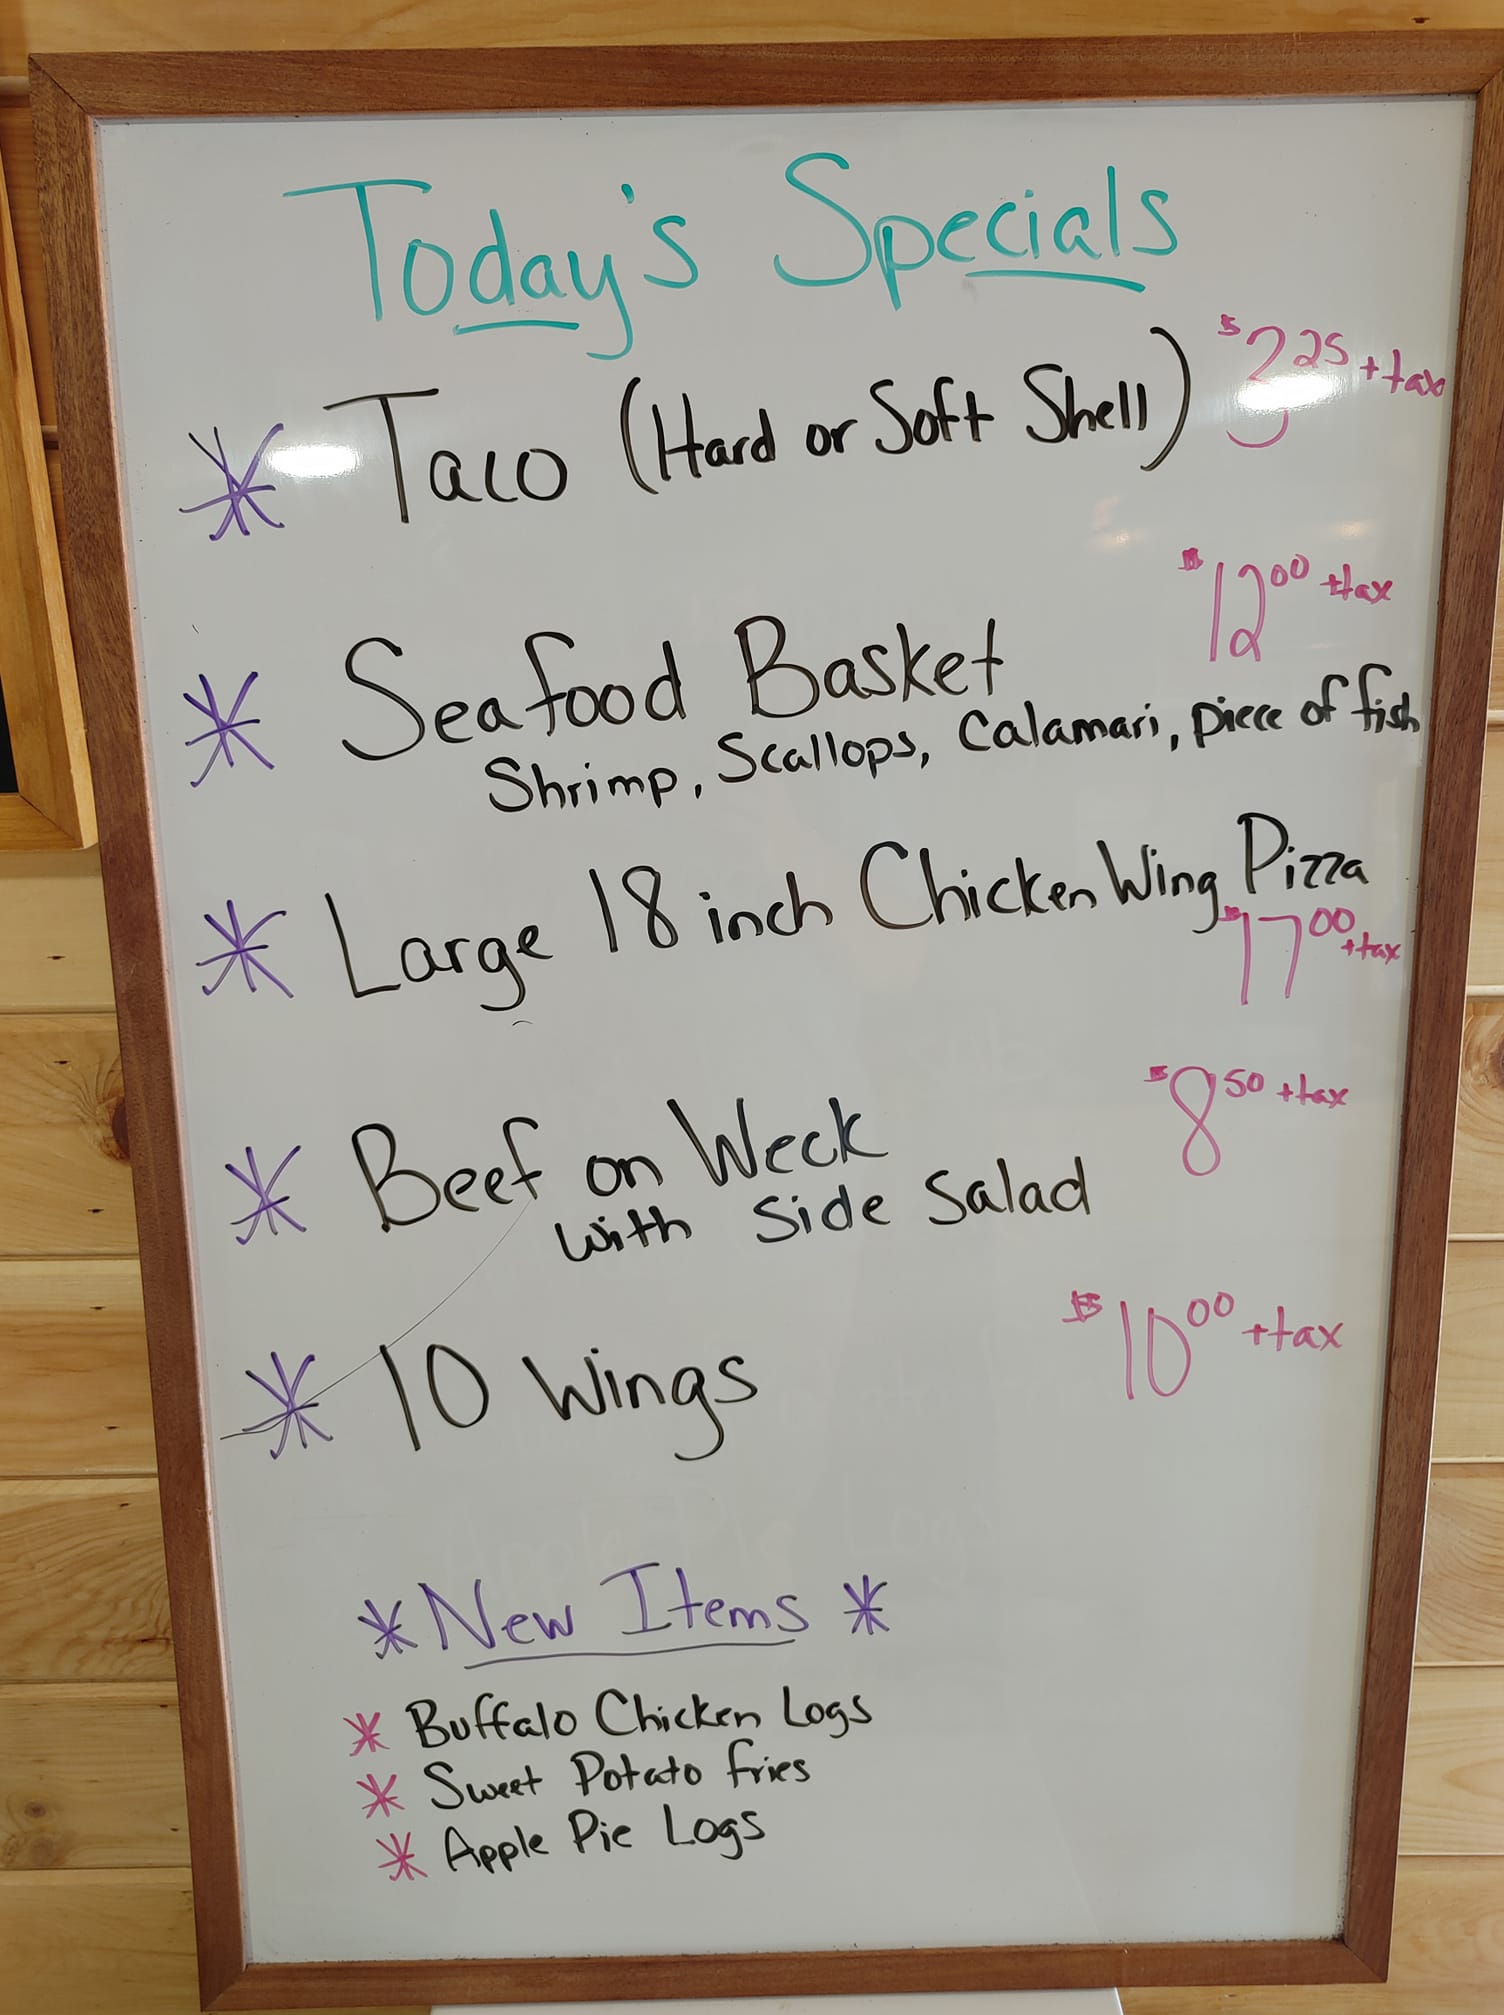 Today's Specials
Taco (Hard or Soft Shell) $3.25 + tax
$12.00 + tax
Seafood Basket
Shrimp, Scallops, Calamari, piece of fish
Large 18 inch Chicken Wing Pizza
$17.00 + tax
$8.50 + tax
Beef on Weck
with side salad
$10.00 + tax
10 Wings
* New Items *
* Buffalo Chicken Logs
* Sweet Potato fries
* Apple Pie Logs